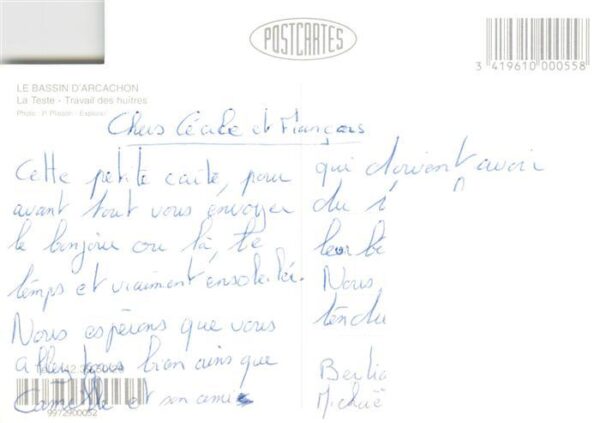 POSTCARTES
3 419610 000558
LE BASSIN D'ARCACHON
La Teste - Travail des huîtres
Chers Cécile et François
Cette petite carte, pour
avant tout vous envoyer
le bonjour ou là, le
temps et vraiment ensoleilléi.
Nous espérons que vous
allez tous bien ainsi que
Camille et son ami
9972900052
qui doivent avoir
du i
leur bé
Nous
tendu
Bertia
Michaë